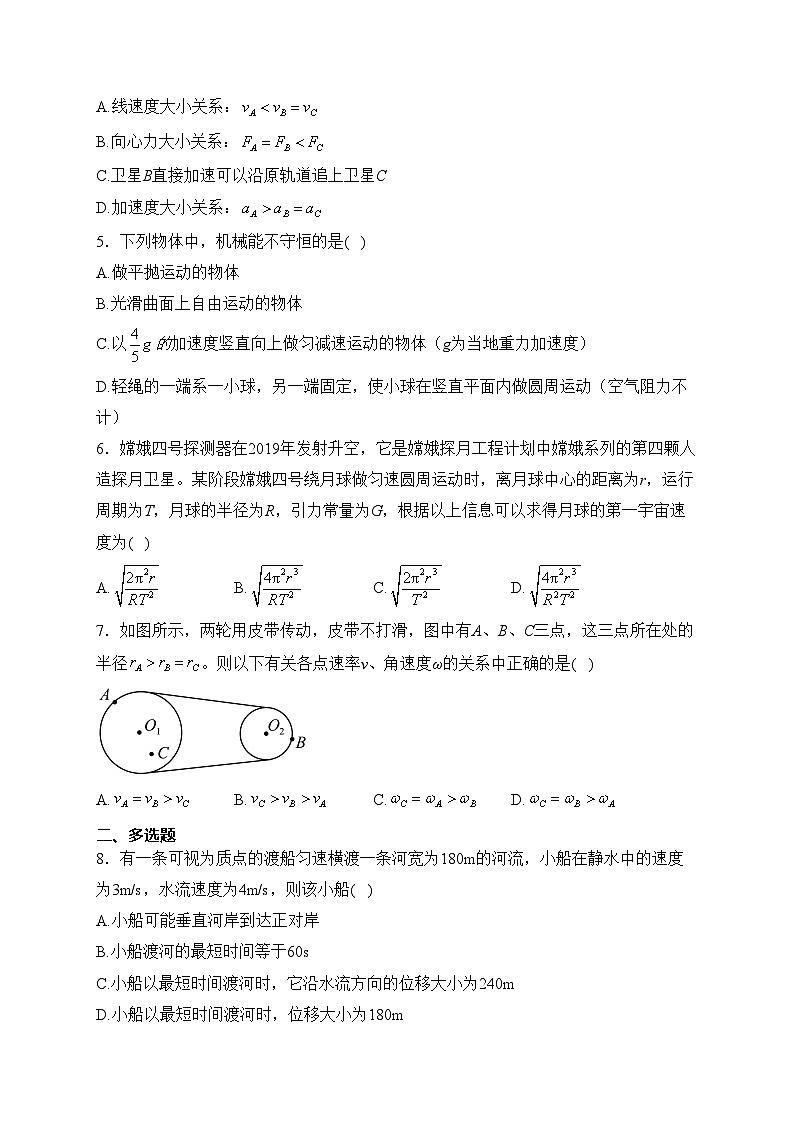 A.线速度大小关系：$v_A < v_B = v_C$
B.向心力大小关系：$F_A = F_B < F_C$
C.卫星B直接加速可以沿原轨道追上卫星C
D.加速度大小关系：$a_A > a_B = a_C$
5．下列物体中，机械能不守恒的是(   )
A.做平抛运动的物体
B.光滑曲面上自由运动的物体
C.以$\frac{4}{5}g$的加速度竖直向上做匀减速运动的物体（g为当地重力加速度）
D.轻绳的一端系一小球，另一端固定，使小球在竖直平面内做圆周运动（空气阻力不
计）
6．嫦娥四号探测器在2019年发射升空，它是嫦娥探月工程计划中嫦娥系列的第四颗人
造探月卫星。某阶段嫦娥四号绕月球做匀速圆周运动时，离月球中心的距离为r，运行
周期为T，月球的半径为R，引力常量为G，根据以上信息可以求得月球的第一宇宙速
度为(   )
A.$\sqrt{\frac{2\pi^2 r}{RT^2}}$ B.$\sqrt{\frac{4\pi^2 r^3}{RT^2}}$ C.$\sqrt{\frac{2\pi^2 r^3}{T^2}}$ D.$\sqrt{\frac{4\pi^2 r^3}{R^2T^2}}$
7．如图所示，两轮用皮带传动，皮带不打滑，图中有A、B、C三点，这三点所在处的
半径$r_A > r_B = r_C$。则以下有关各点速率v、角速度ω的关系中正确的是(   )
A
O₁
O₂
B
C
A.$v_A = v_B > v_C$ B.$v_C > v_B > v_A$ C.$\omega_C = \omega_A > \omega_B$ D.$\omega_C = \omega_B > \omega_A$
二、多选题
8．有一条可视为质点的渡船匀速横渡一条河宽为180m的河流，小船在静水中的速度
为3m/s，水流速度为4m/s，则该小船(   )
A.小船可能垂直河岸到达正对岸
B.小船渡河的最短时间等于60s
C.小船以最短时间渡河时，它沿水流方向的位移大小为240m
D.小船以最短时间渡河时，位移大小为180m